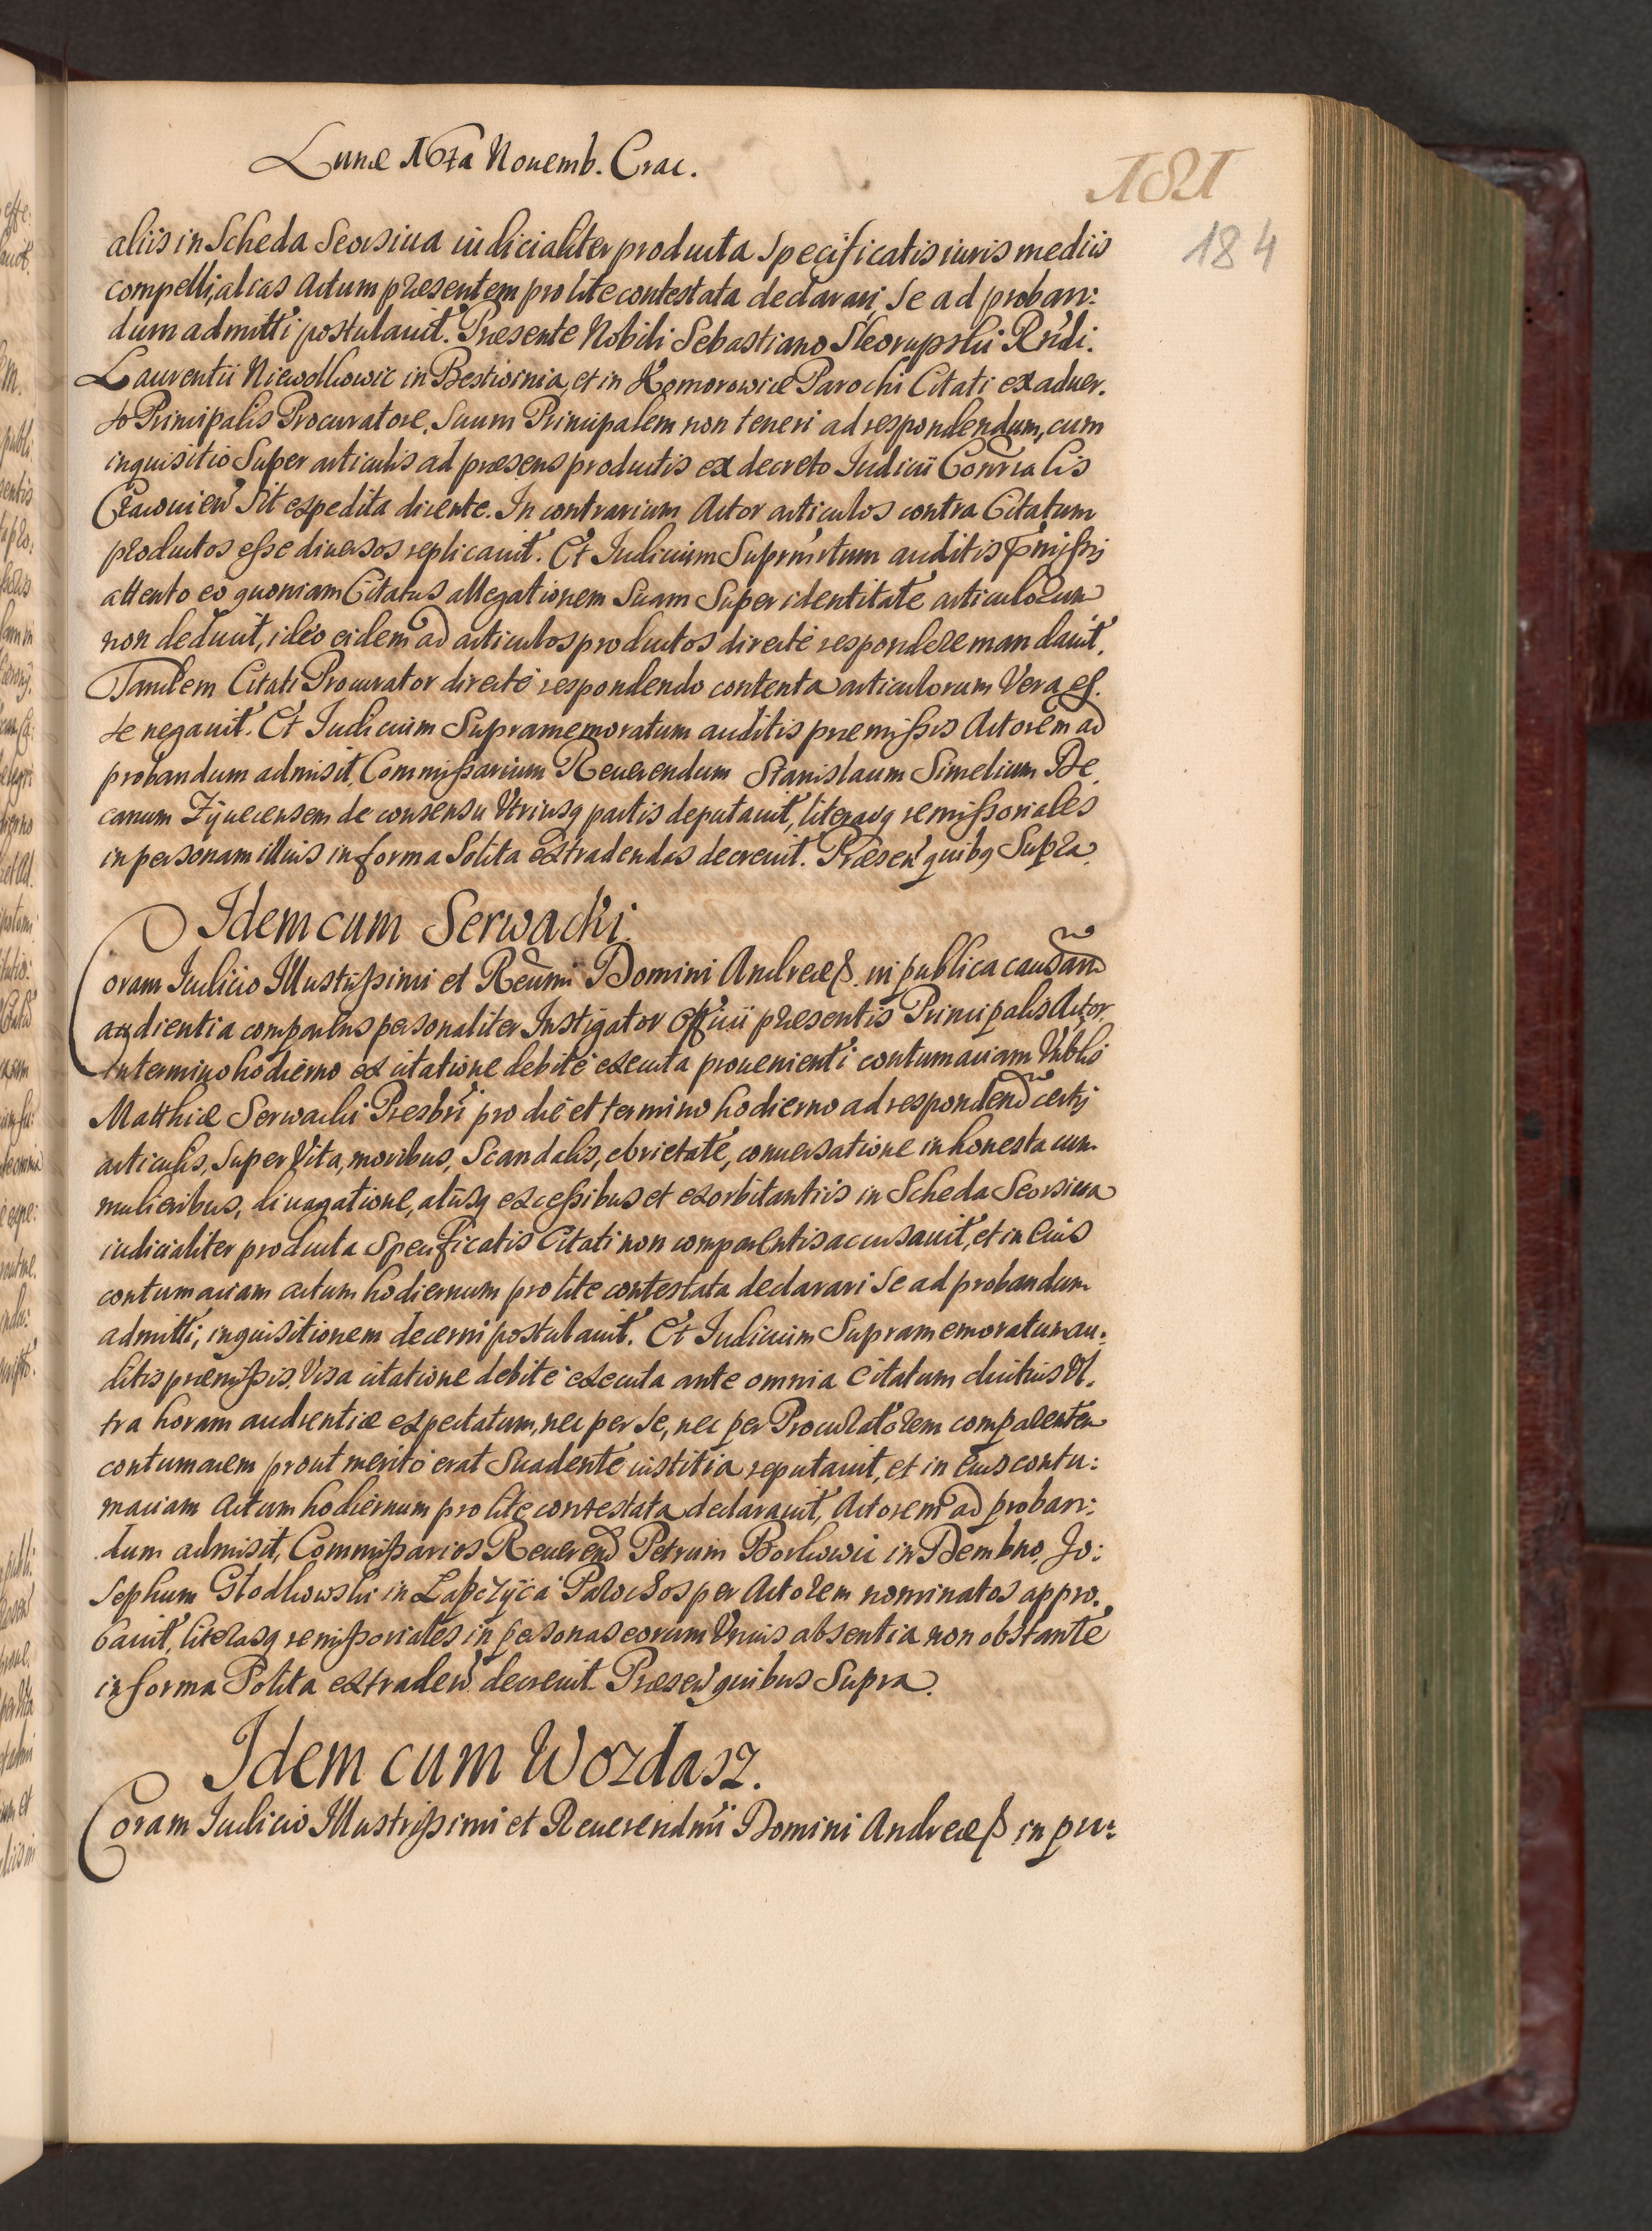 Lunæ 16ta Nouemb. Crac.
181
184
aliis in Scheda Seorsiua iudicialiter producta Specificatis iuris mediis
compelli, alias Actum præsentem pro lite contestata declarari, Se ad proban:
dum admitti postulauit. Præsente Nobili Sebastiano Skorupski Rndi.
Laurentii Niewdkowic in Bestwinia, et in Komorowice Parochi Citati ex aduer.
so Principalis Procuratore, Suum Principalem non teneri ad respondendum, cum
inquisitio Super articulis ad præsens productis ex decreto Iudicii Consrialis
Cracouien Sit expedita dicente. In contrarium Actor articulos contra Citatum
productos esse diuersos replicauit. Et Iudicium Suprmrtum auditis præmissis
attento eo quoniam Citatus allegationem Suam Super identitate articulorum
non deduxit, ideo eidem ad articulos productos directe respondere mandauit.
Tandem Citati Procurator directe respondendo contenta articulorum Vera es.
se negauit. Et Iudicium Supramemoratum auditis præmissis Actorem ad
probandum admisit, Commissarium Reuerendum Stanislaum Simelium De.
canum Zyuecensem de consensu Vtriusq partis deputauit, literasq remissoriales
in personam illius in forma Solita extradendas decreuit. Præsen quibq Supra.
Idem cum Serwacki.
Coram Iudicio Illustrissimi et Reumi Domini Andreæ ß. in publica causarum
audientia comparens personaliter Instigator Officii præsentis Principalis Actor
in termino hodierno ex citatione debite executa prouenienti contumaciam Vnblis
Matthiæ Serwacki Presbri pro die et termino hodierno ad respondend certis
articulis, Super Vita, moribus, Scandalis, ebrietate, conuersatione inhonesta cum
mulieribus, diuagatione, aliisq excessibus et exorbitantiis in Scheda Seorsiua
iudicialiter producta Specificatis Citati non comparentis accusauit, et in eius
contumaciam actum hodiernum pro lite contestata declarari Se ad probandum
admitti, inquisitionem decerni postulauit. Et Iudicium Supramemoratum au.
ditis præmissis, Visa citatione debite executa ante omnia Citatum diutius Vl.
tra horam audientiæ expectatum, nec per Se, nec per Procuratorem comparentem
contumacem prout merito erat Suadente iustitia reputauit, et in eius contu:
maciam Actum hodiernum pro lite contestata declarauit, Actorem ad proban:
dum admisit, Commissarios Reuerend Petrum Borkowic in Dembno, Jo:
sephum Glodkowski in Lapczyca Parochos per Actorem nominatos appro.
bauit, literasq remissoriales in personas eorum Vnius absentia non obstante
in forma Solita extraden decreuit. Præsen quibus Supra.
Idem cum Wozdasz.
Coram Iudicio Illustrissimi et Reuerendmi Domini Andreæ ß in pu: